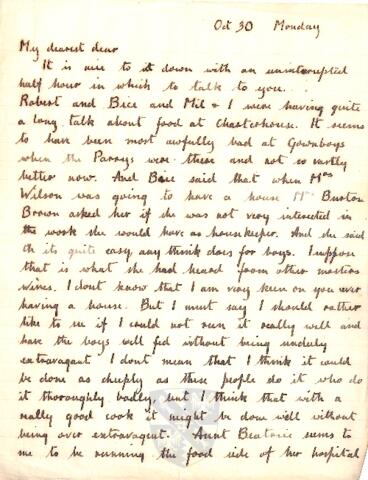 Oct 30 Monday
My dearest dear
It is nice to sit down with an uninterrupted
half hour in which to talk to you. . .
Robert and Bice and Mil & I were having quite
a long talk about food at Charterhouse. It seems
to have been most awfully bad at Gownboys
when the Parrys were there and not so vastly
better now. And Bice said that when Mrs
Wilson was going to have a house Mrs Burton
Brown asked her if she was not very interested in
the work she would have as housekeeper. And she said
oh its quite easy, any think does for boys. I suppose
that is what she had heard from other masters
wives. I dont know that I am very keen on you ever
having a house. But I must say I should rather
like to see if I could not run it really well and
have the boys well fed without being unduly
extravagant I dont mean that I think it could
be done as cheaply as these people do it who do
it thoroughly badly, but I think that with a
really good cook it might be done well without
being over extravagent. Aunt Beatrice seems to
me to be running the food side of her hospital